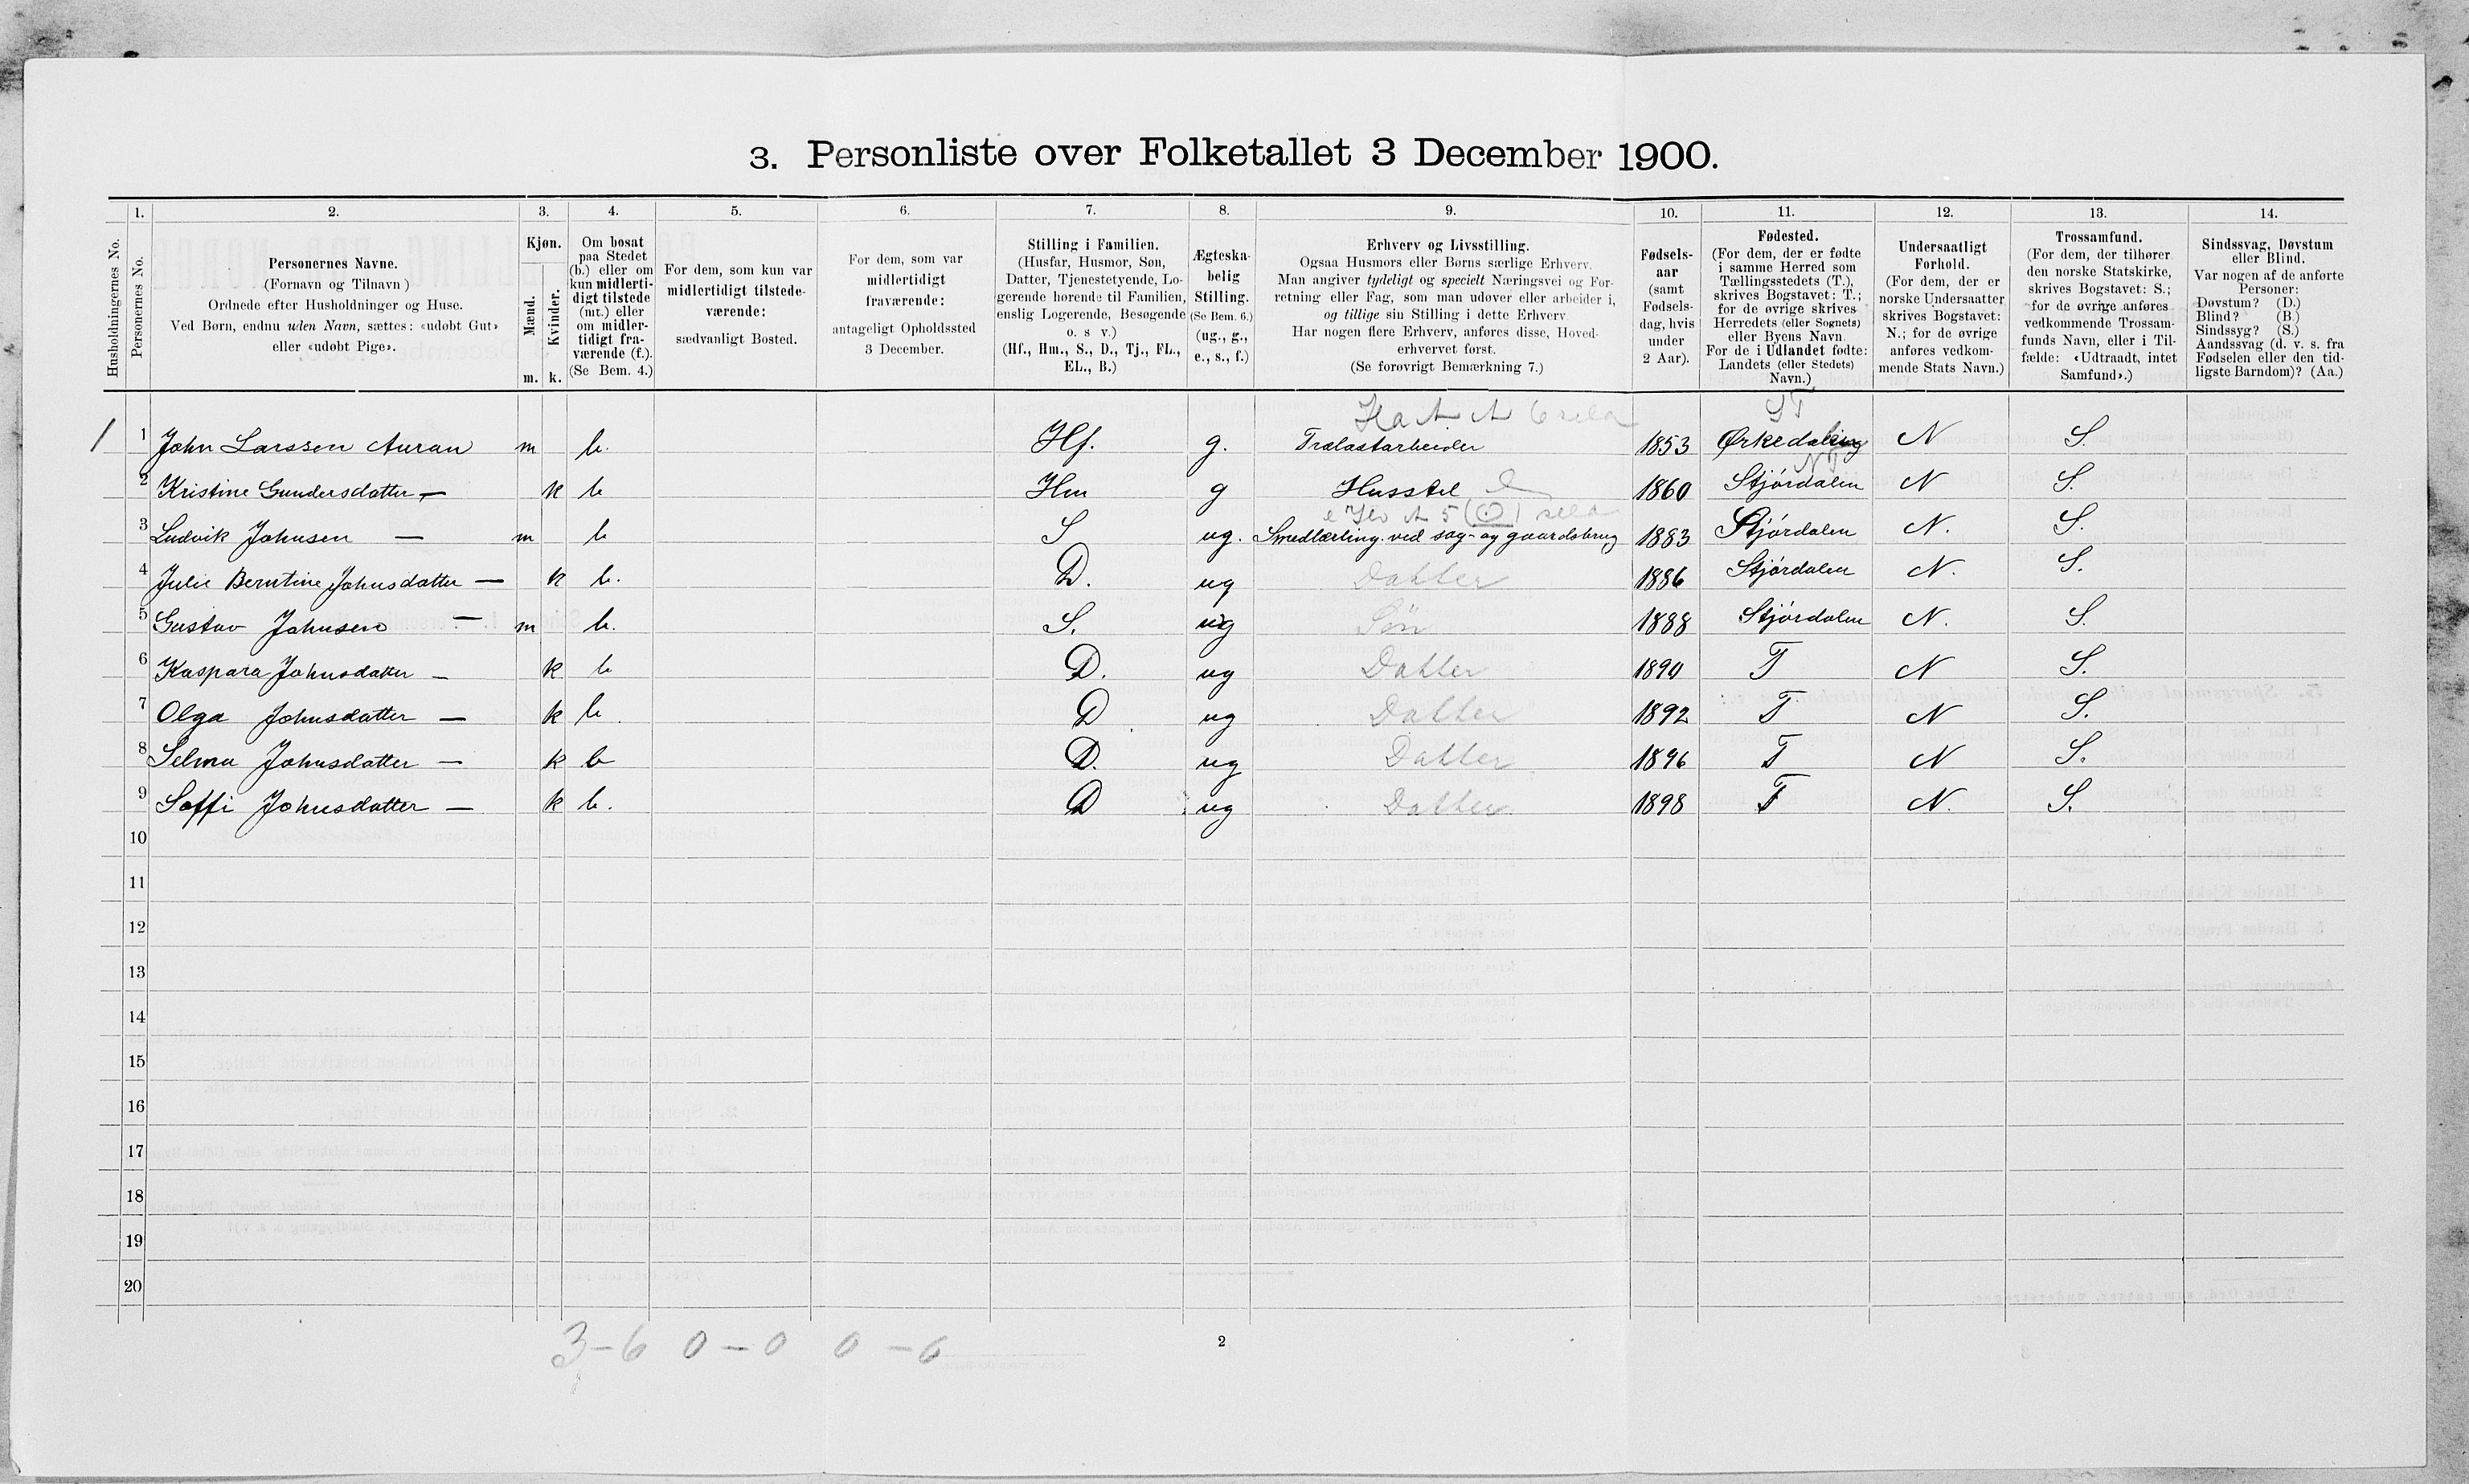 3. Personliste over Folketallet 3 December 1900.
1. 2. 3. 4. 5. 6. 7. 8. 9. 10. 11. 12. 13. 14.
Husholdningernes No.
Personernes No.
Personernes Navne.
(Fornavn og Tilnavn)
Ordnede efter Husholdninger og Huse.
Ved Børn, endnu uden Navn, sættes: «udøbt Gut»
eller «udøbt Pige».
Kjøn.
Mænd.
Kvinder.
m. k.
Om bosat
paa Stedet
(b.) eller om
kun midlerti-
digt tilstede
(mt.) eller
om midler-
tidigt fra-
værende (f.).
(Se Bem. 4.)
For dem, som kun var
midlertidigt tilstede-
værende:
sædvanligt Bosted.
For dem, som var
midlertidigt
fraværende:
antageligt Opholdssted
3 December.
Stilling i Familien.
(Husfar, Husmor, Søn,
Datter, Tjenestetyende, Lo-
gerende hørende til Familien,
enslig Logerende, Besøgende
o. s v.)
(Hf., Hm., S., D., Tj., FL.,
EL., B.)
Ægteska-
belig
Stilling.
(Se Bem. 6.)
(ug., g.,
e., s., f.)
Erhverv og Livsstilling.
Ogsaa Husmors eller Børns særlige Erhverv.
Man angiver tydeligt og specielt Næringsvei og For-
retning eller Fag, som man udøver eller arbeider i,
og tillige sin Stilling i dette Erhverv
Har nogen flere Erhverv, anføres disse, Hoved-
erhvervet først.
(Se forøvrigt Bemærkning 7.)
Fødsels-
aar
(samt
Fødsels-
dag, hvis
under
2 Aar).
Fødested.
(For dem, der er fødte
i samme Herred som
Tællingsstedets (T.),
skrives Bogstavet: T.;
for de øvrige skrives
Herredets (eller Sognets)
eller Byens Navn
For de i Udlandet fødte:
Landets (eller Stedets)
Navn.)
Undersaatligt
Forhold.
(For dem, der er
norske Undersaatter
skrives Bogstavet:
N.; for de øvrige
anføres vedkom-
mende Stats Navn.)
Trossamfund.
(For dem, der tilhører
den norske Statskirke,
skrives Bogstavet: S.;
for de øvrige anføres
vedkommende Trossam-
funds Navn, eller i Til-
fælde: «Udtraadt, intet
Samfund».)
Sindssvag, Døvstum
eller Blind.
Var nogen af de anførte
Personer:
Døvstum? (D.)
Blind? (B.)
Sindssyg? (S.)
Aandssvag (d. v. s. fra
Fødselen eller den tid-
ligste Barndom)? (Aa.)
ST
1 1 John Larssen Auran m b. Hf. g. Trælastarbeider 1853 Ørkedalen N S.
NT
2 Kristine Gundersdatter — k b Hm g Husstel 1860 Stjórdalen N S.
3 Ludvik Johnsen — m b S ug. Smedlærling ved sag- og gaardsbrug 1883 Stjórdalen N. S.
4 Julie Berntine Johnsdatter — k b. D. ug Datter 1886 Stjórdalen N. S.
5 Gustav Johnsen — m b. S. ug Søn 1888 Stjórdalen N. S.
6 Kaspara Johnsdatter — k b D. ug Datter 1890 T N S.
7 Olga Johnsdatter — k b. D ug Datter 1892 T N S.
8 Selma Johnsdatter — k b D. ug Datter 1896 T N S.
9 Soffi Johnsdatter — k b. D ug Datter 1898 T N. S.
10
11
12
13
14
15
16
17
18
19
20
3–6 0–0 0–0
2